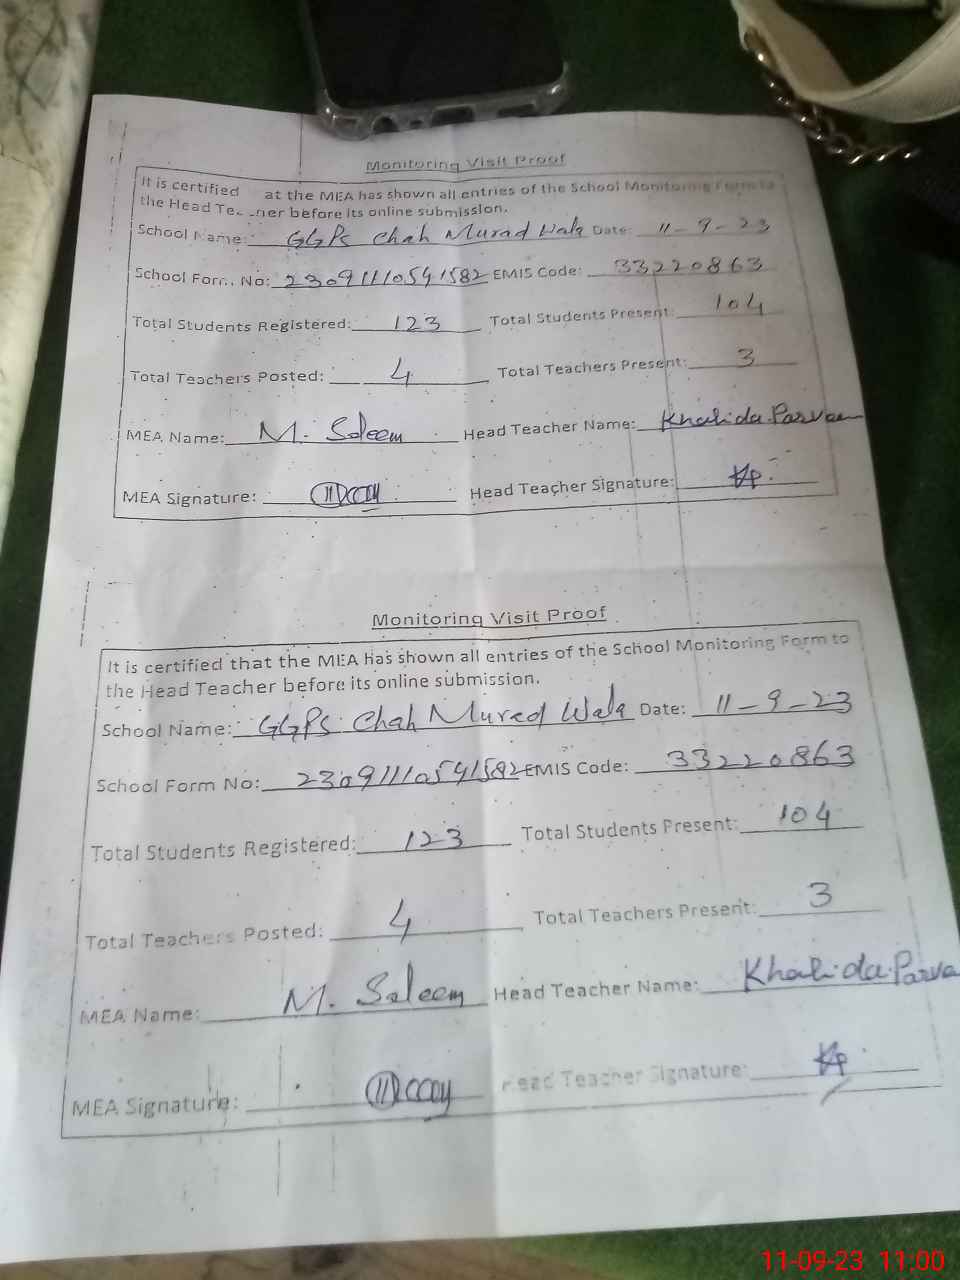 Monitoring Visit Proof
It is certified at the MEA has shown all entries of the School Monitoring Form to
the Head Te ner before its online submission.
School Name: GGPS Chah Murad Wala Date: 11-9-23
School Form No: 23091110541582 EMIS Code: 33220863
Total Students Registered: 123 Total Students Present: 104
Total Teachers Posted: 4 Total Teachers Present: 3
MEA Name: M. Saleem Head Teacher Name: Khalida Parveen
MEA Signature: Head Teacher Signature: KP.
Monitoring Visit Proof
It is certified that the MEA has shown all entries of the School Monitoring Form to
the Head Teacher before its online submission.
School Name: GGPS Chah Murad Wala Date: 11-9-23
School Form No: 23091110541582 EMIS Code: 33220863
Total Students Registered: 123 Total Students Present: 104
Total Teachers Posted: 4 Total Teachers Present: 3
MEA Name: M. Saleem Head Teacher Name: Khalida Parve
MEA Signature: Head Teacher Signature: KP.
11-09-23 11:00